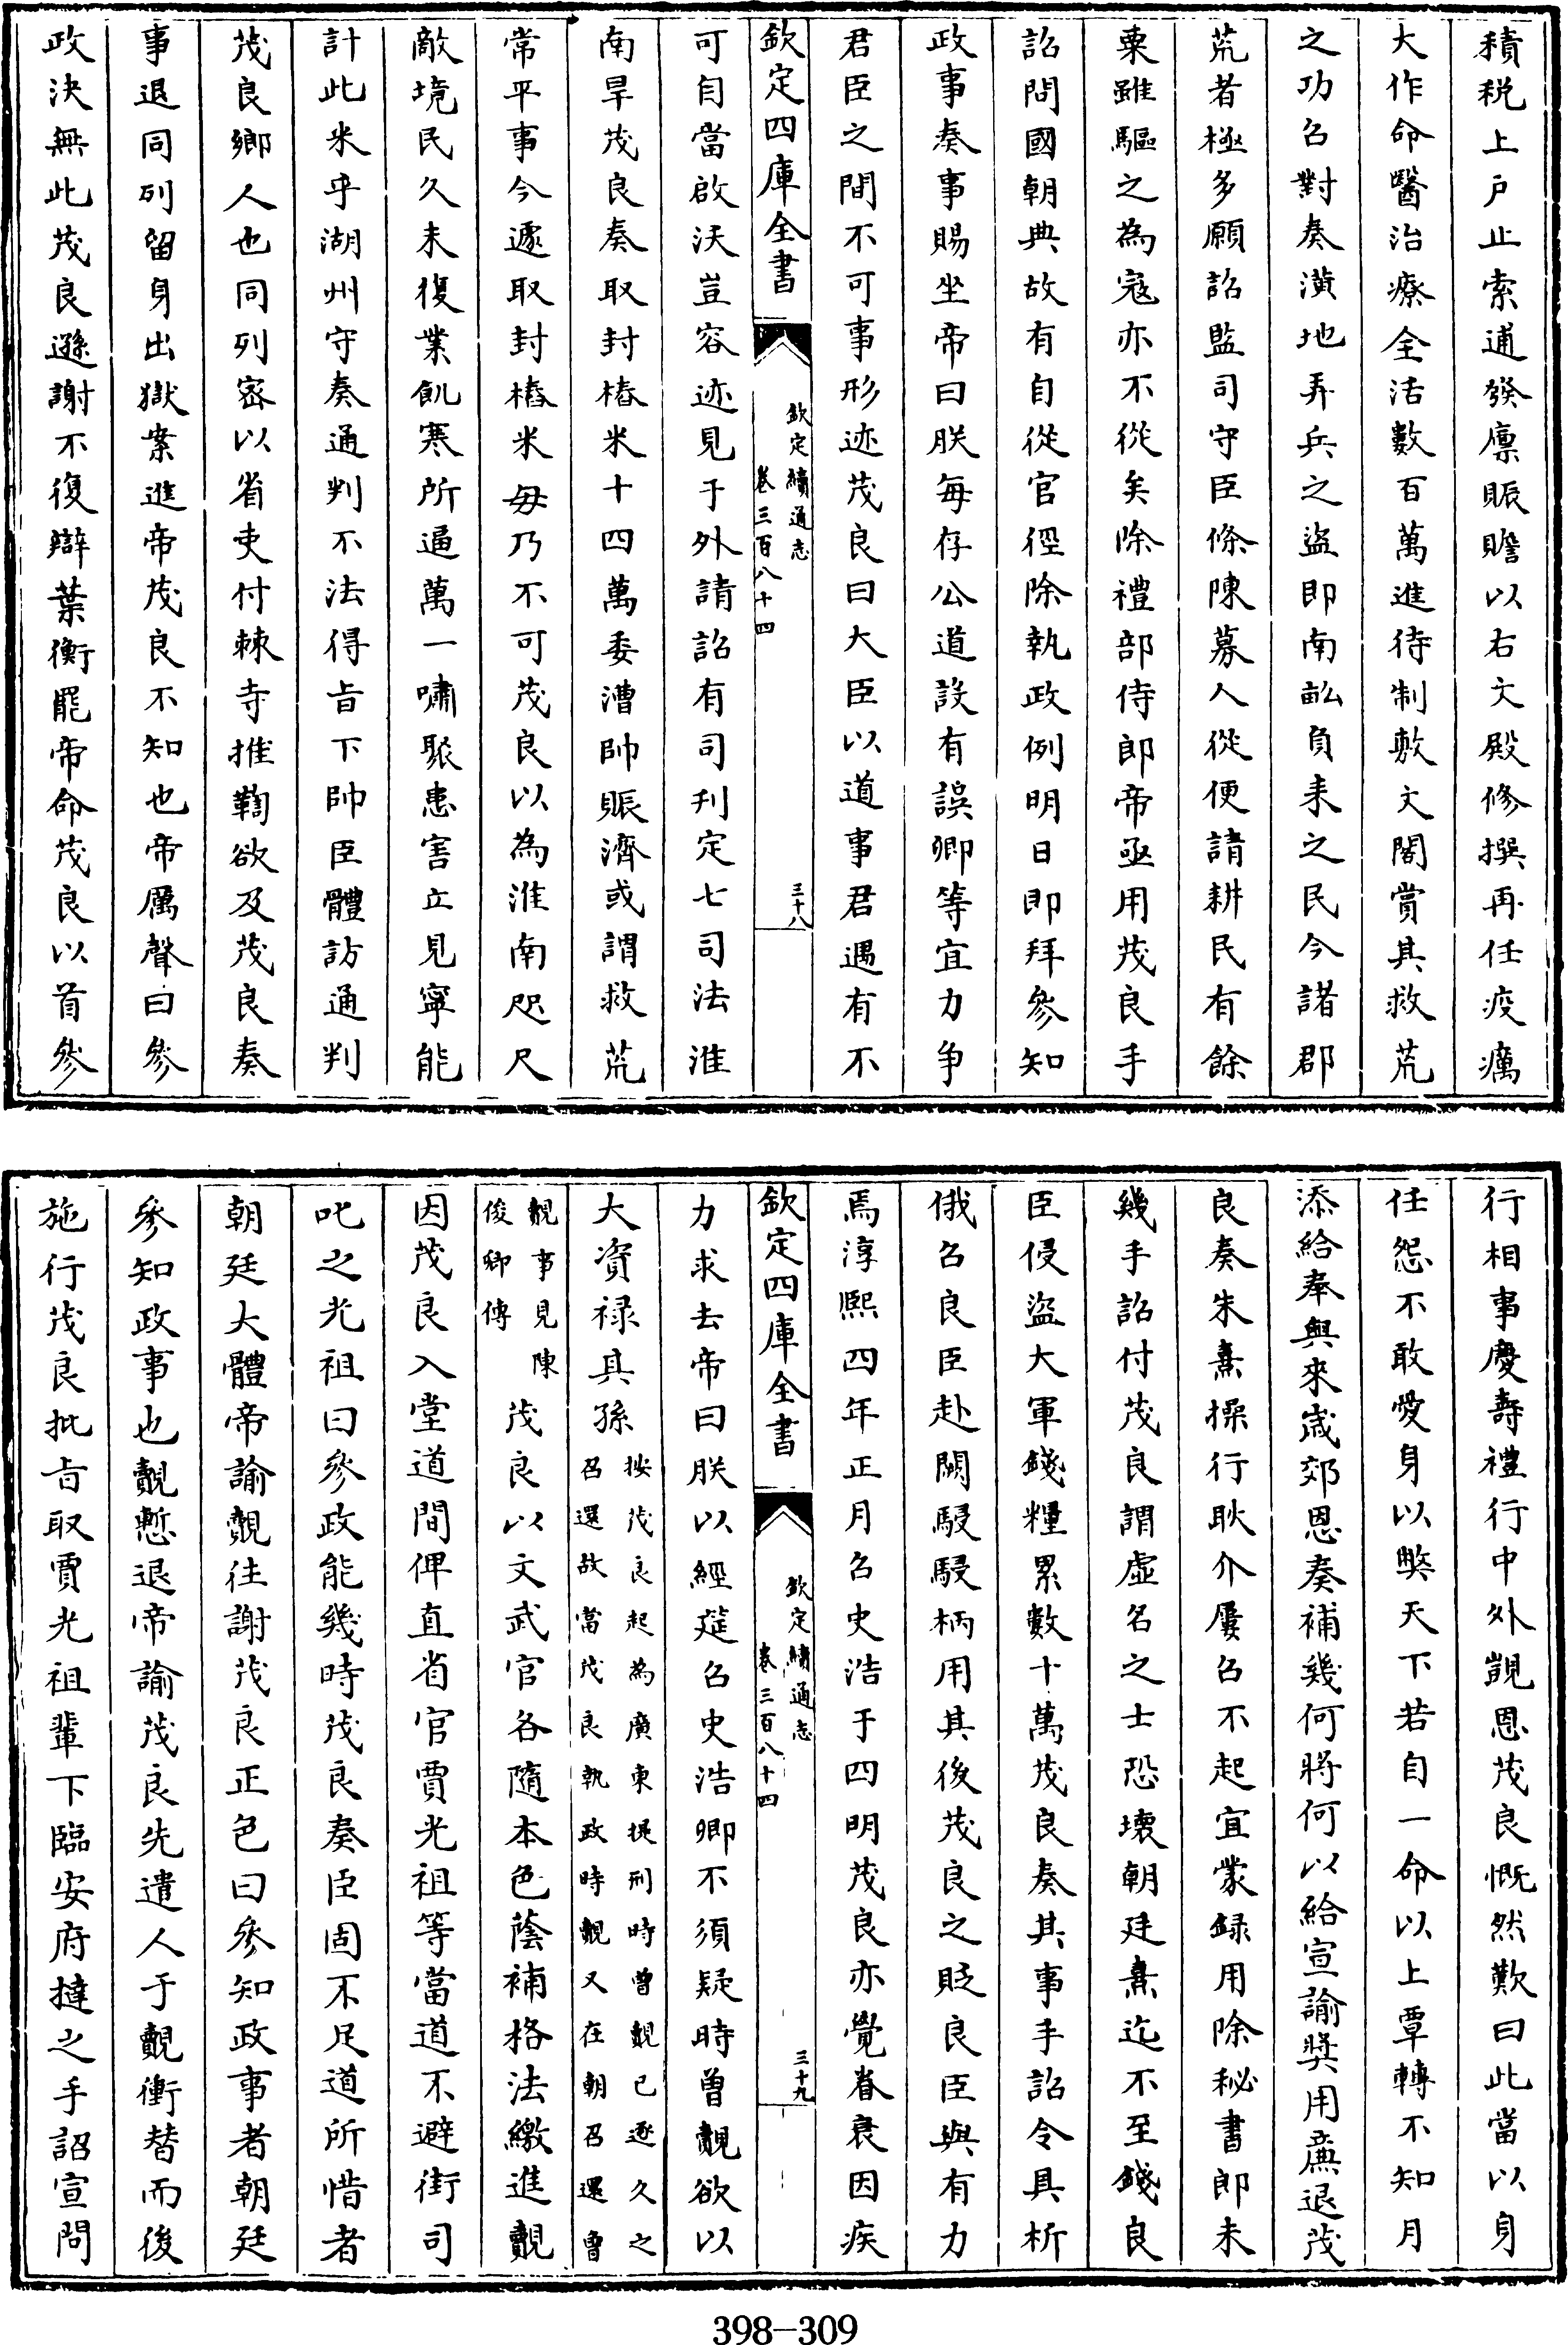 積税上戸止索逋發廩賑贍以右文殿修撰再任疫癘
大作命醫治療全活數百萬進待制敷文閣賞其救荒
之功召對奏潢池弄兵之盜即南畝負耒之民今諸郡
荒者極多願詔監司守臣條陳募人從便請耕民有餘
粟雖驅之為冦亦不從矣除禮部侍郎帝亟用茂良手
詔問國朝典故有自從官徑除執政例明日即拜參知
政事奏事賜坐帝曰朕每存公道設有誤卿等宜力争
君臣之間不可事形迹茂良曰大臣以道事君遇有不
欽定四庫全書
欽定續通志
卷三百八十四
三十八
可自當啟沃豈容迹見于外請詔有司刋定七司法淮
南旱茂良奏取封樁米十四萬委漕帥賑濟或謂救荒
常平事今遽取封樁米毋乃不可茂良以為淮南咫尺
敵境民久未復業飢寒所逼萬一嘯聚患害立見寧能
計此米乎湖州守奏通判不法得旨下帥臣體訪通判
茂良鄉人也同列密以省吏付棘寺推鞫欲及茂良奏
事退同列留身出獄案進帝茂良不知也帝厲聲曰參
政決無此茂良遜謝不復辯葉衡罷帝命茂良以首參
行相事慶壽禮行中外覬恩茂良慨然歎曰此當以身
任怨不敢愛身以獘天下若自一命以上覃轉不知月
添給奉與來嵗郊恩奏補幾何將何以給宣諭奬用廉退茂
良奏朱熹操行耿介屢召不起宜蒙録用除秘書郎未
幾手詔付茂良謂虚名之士恐壊朝廷熹迄不至錢良
臣侵盜大軍錢糧累數十萬茂良奏其事手詔令具析
俄召良臣赴闕駸駸柄用其後茂良之貶良臣與有力
焉淳熙四年正月召史浩于四明茂良亦覺眷衰因疾
欽定四庫全書
欽定續通志
卷三百八十四
三十九
力求去帝曰朕以經筵召史浩卿不須疑時曽覿欲以
大資禄其孫按茂良起為廣東提刑時曽覿已逐久之召還故當茂良執政時覿又在朝召還曽
覿事見陳俊卿傳茂良以文武官各隨本色蔭補格法繳進覿
因茂良入堂道間俾直省官賈光祖等當道不避街司
叱之光祖曰參政能幾時茂良奏臣固不足道所惜者
朝廷大體帝諭覿往謝茂良正色曰參知政事者朝廷
參知政事也覿慙退帝諭茂良先遣人于覿衝替而後
施行茂良批旨取賈光祖輩下臨安府撻之手詔宣問
398-309